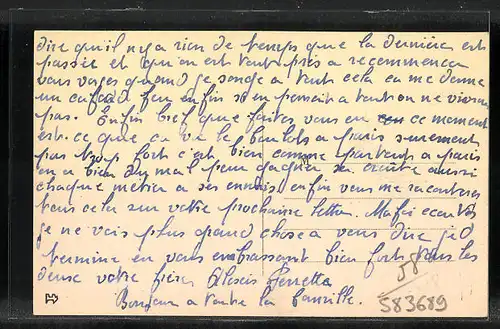 dire qu'il n'y a rien de temps que la dernière est
passée et qu'on est tout près a recommencer
vous voyez quand je songe a tout cela ca me donne
un cafard fou enfin si on pensait a tout on ne vivrai
pas. Enfin bref que faites vous en ce moment
est ce que ca va le boulots a paris surement
pas trop fort c'est bien comme partout a paris
on a bien du mal pour gagner sa croute aussi
chaque métier a ses ennuis enfin vous me raconterez
tous cela sur votre prochaine lettre. Ma foi
je ne vois plus grand chose a vous dire je
termine en vous embrassant bien fort tous les
deux votre frère Alexis Ferretta
Bonjour a toute la famille.
58
583689